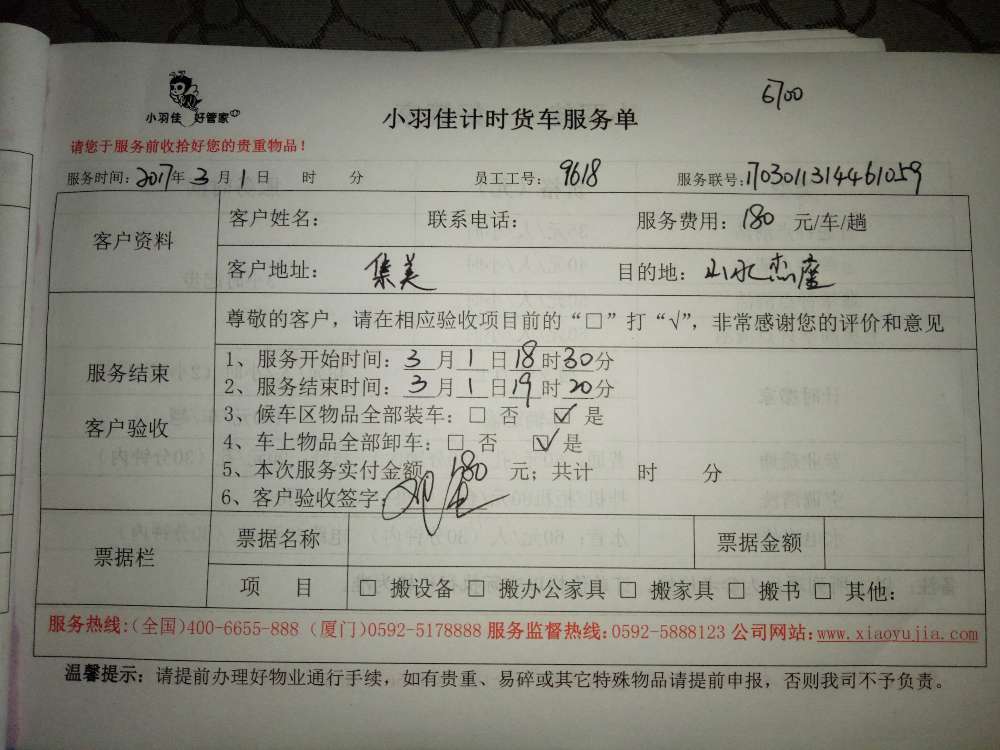 6700
小羽佳 好管家
小羽佳计时货车服务单
请您于服务前收拾好您的贵重物品！
服务时间：2017年 3 月 1 日 时 分 员工工号：9618 服务联号：1703011314461059
客户资料
客户姓名： 联系电话： 服务费用：180 元/车/趟
客户地址： 集美 目的地：山水杰座
服务结束
客户验收
尊敬的客户，请在相应验收项目前的“□”打“√”，非常感谢您的评价和意见
1、服务开始时间：3 月 1 日 18 时 30 分
2、服务结束时间：3 月 1 日 19 时 20 分
3、候车区物品全部装车：□ 否 ☑ 是
4、车上物品全部卸车：□ 否 ☑ 是
5、本次服务实付金额 180 元；共计 时 分
6、客户验收签字：
票据栏
票据名称 票据金额
项 目 □ 搬设备 □ 搬办公家具 □ 搬家具 □ 搬书 □ 其他：
服务热线：（全国）400-6655-888（厦门）0592-5178888 服务监督热线：0592-5888123 公司网站：www.xiaoyujia.com
温馨提示：请提前办理好物业通行手续，如有贵重、易碎或其它特殊物品请提前申报，否则我司不予负责。